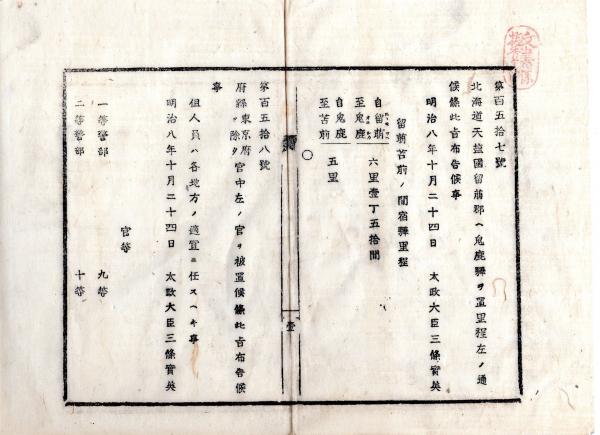 第百五拾七號
北海道天塩國留萠郡ヘ鬼鹿驛ヲ置里程左ノ通
候條此旨布告候事
明治八年十月二十四日 太政大臣三條實美
留萠苫前ノ間宿驛里程
自留萠
至鬼鹿 六里壹丁五拾間
自鬼鹿
至苫前 五里
〇
第百五拾八號
府縣東京府ヲ除ク官中左ノ官ヲ被置候條此旨布告候
事
但人員ハ各地方ノ適宜ニ任スヘキ事
明治八年十月二十四日 太政大臣三條實美
官等
一等警部 九等
二等警部 十等
壹